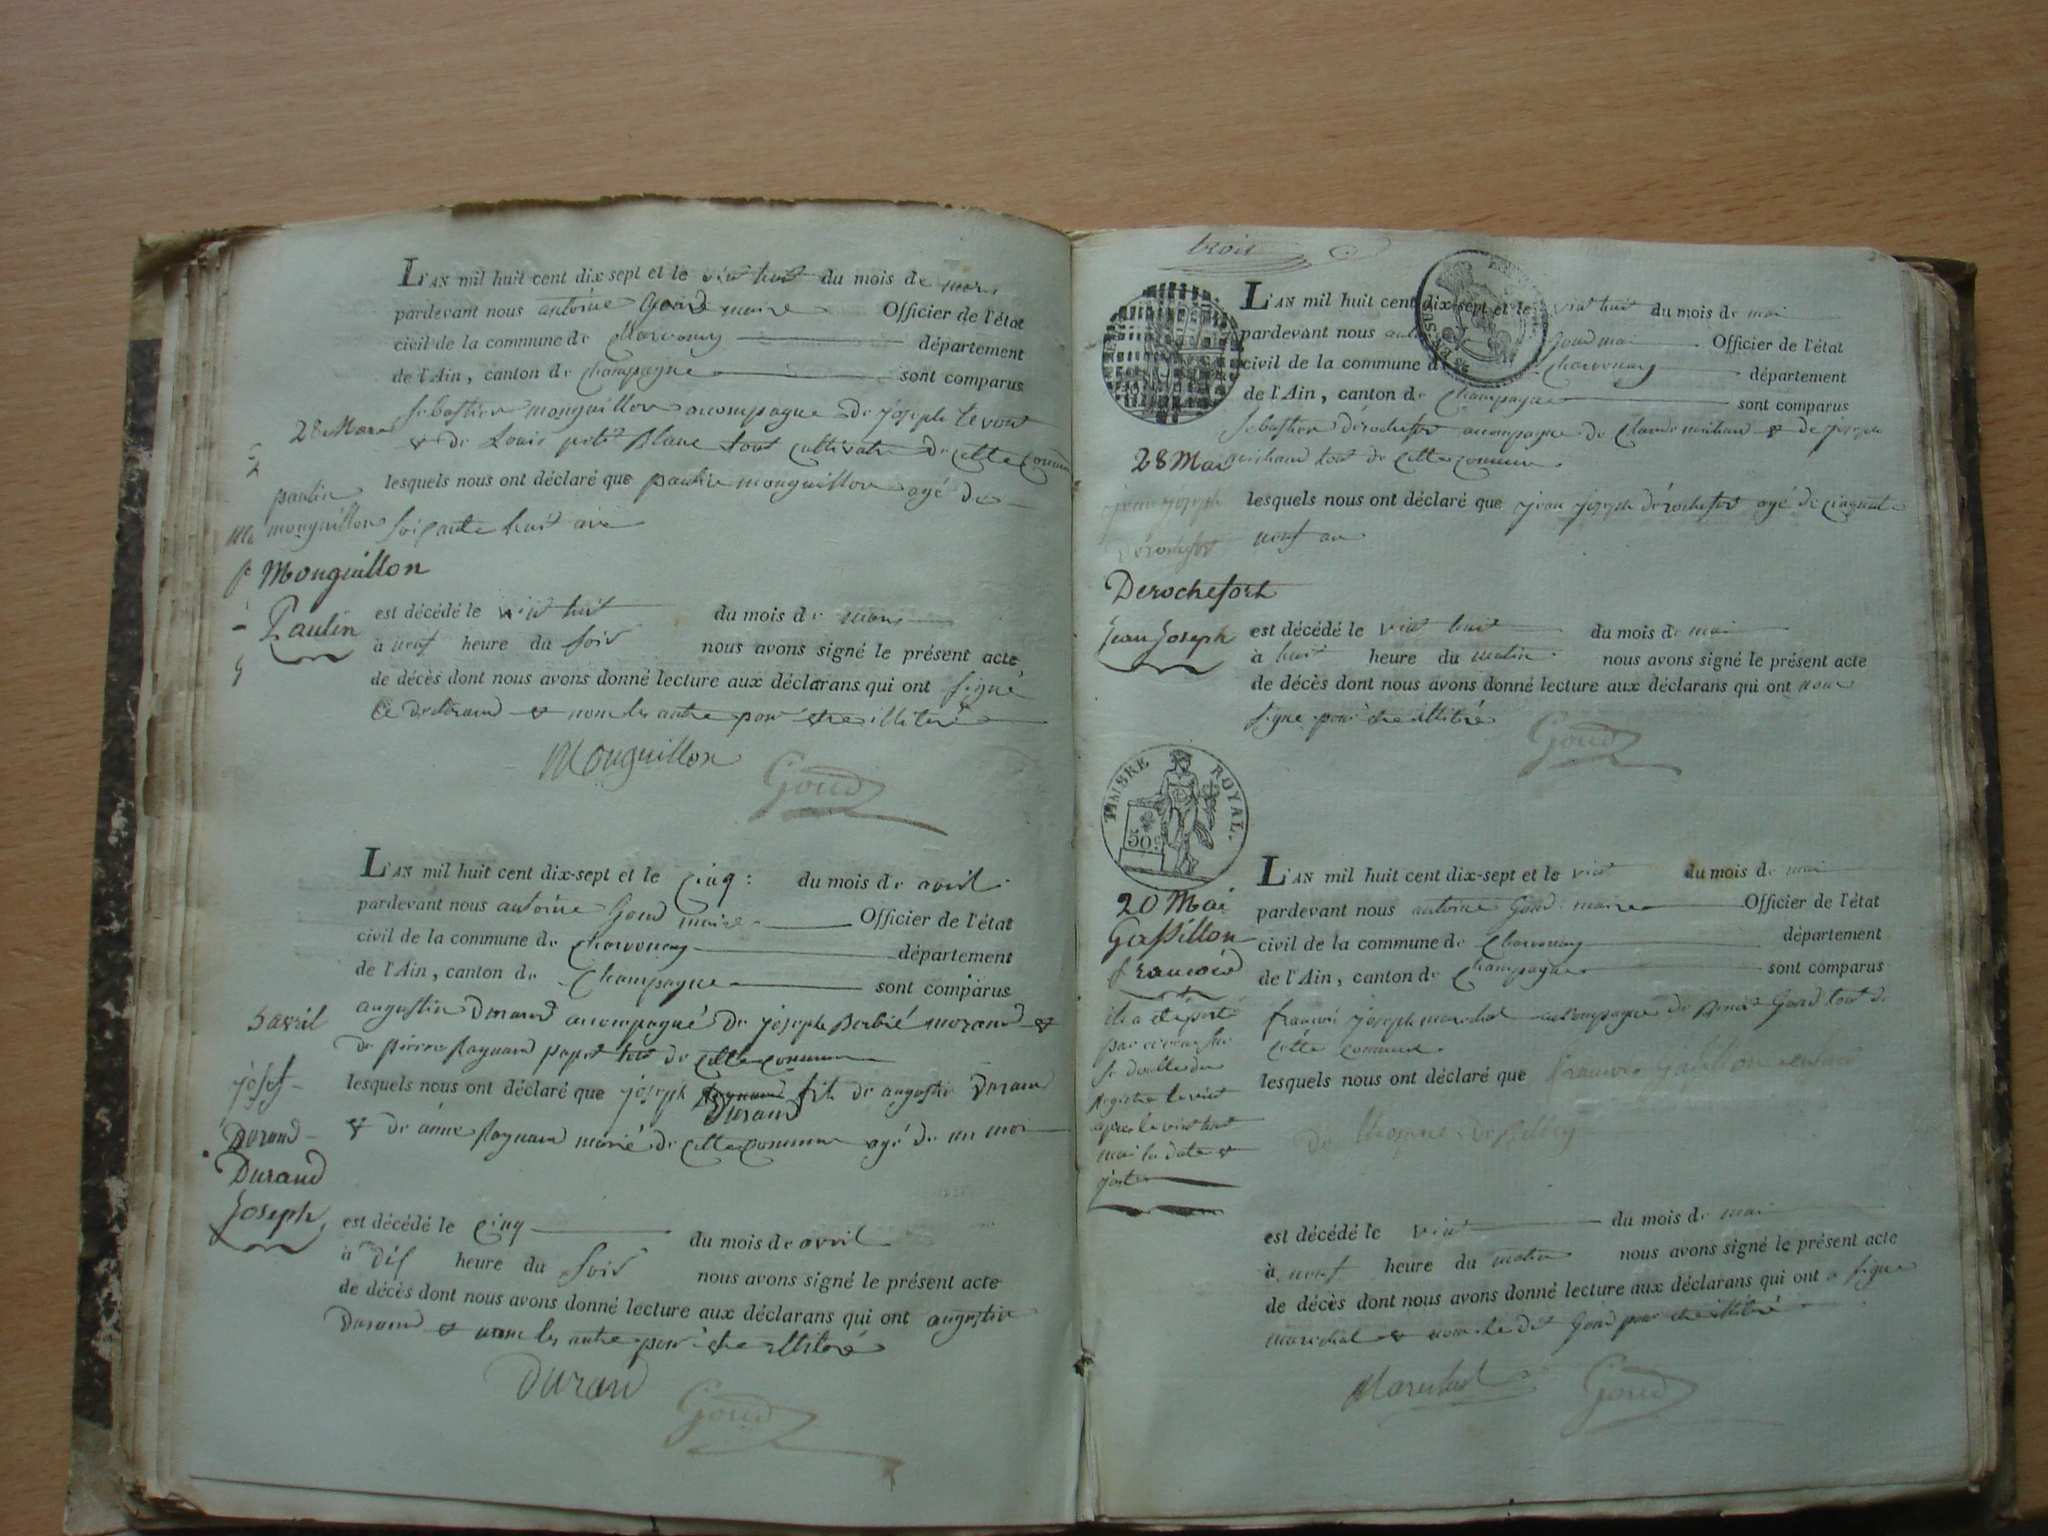 L'AN mil huit cent dix sept et le vint huit du mois de mars
pardevant nous antoine Goud maire Officier de l'état
civil de la commune de Charvonay département
de l'Ain, canton de Champagne sont comparus
28 Mars
Sebastien monguillon acompagne de joseph
& de Louis petit Blanc tout cultivatr de cette comune
lesquels nous ont déclaré que paulin monguillon agé de
paulin
monguillon
soisante huit ans
Monguillon
Paulin
est décédé le vint huit du mois de mars
à neuf heure du soir nous avons signé le présent acte
de décès dont nous avons donné lecture aux déclarans qui ont signé
le declarand & non les autre pour etre illiteré
Monguillon
Goud
L'AN mil huit cent dix-sept et le cinq : du mois de avril
pardevant nous antoine Goud maire Officier de l'état
civil de la commune de Charvonay département
de l'Ain, canton de Champagne sont comparus
5 avril
augustin Durand acompagné de joseph Berlié morand &
de Pierre Raynaud tout de cette commune
josef
Durand
lesquels nous ont déclaré que joseph Raynaud fils de augustin Durand
Durand
& de anne Raynaud marié de cette commune agé de un moi
Durand
Joseph
est décédé le cinq du mois de avril
à dis heure du soir nous avons signé le présent acte
de décès dont nous avons donné lecture aux déclarans qui ont augustin
Durand & nom les autre pour etre illiteré
Duran
Goud
trois
L'AN mil huit cent dix-sept et le vint huit du mois de mai
pardevant nous Goud mai Officier de l'état
civil de la commune de Charvonay département
de l'Ain, canton de Champagne sont comparus
Sebastien dérochefort acompagne de Claude michaud & de joseph
28 Mai
michaud tout de cette commune
jean joseph
dérochefort
lesquels nous ont déclaré que jean joseph dérochefort agé de cinquante
neuf an
Derochefort
Jean Joseph
est décédé le vint huit du mois de mai
à huit heure du matin nous avons signé le présent acte
de décès dont nous avons donné lecture aux déclarans qui ont nom
signe pour etre illitéré
Goud
TIMBRE ROYAL.
50
L'AN mil huit cent dix-sept et le vint du mois de mai
20 Mai
pardevant nous antoine Goud maire Officier de l'état
Gassillon
civil de la commune de Charvonay département
francois
de l'Ain, canton de Champagne sont comparus
francois joseph marechal acompagne de Goud tout de
cette commune
il a eté porté
par erreur sur
le double du
registre le vint
après le vint huit
mai la date &
juste
lesquels nous ont déclaré que francois
est décédé le vint du mois de mai
à neuf heure du matin nous avons signé le présent acte
de décès dont nous avons donné lecture aux déclarans qui ont a signe
marechal & non le dit Goud pour etre illitéré
Marechal
Goud